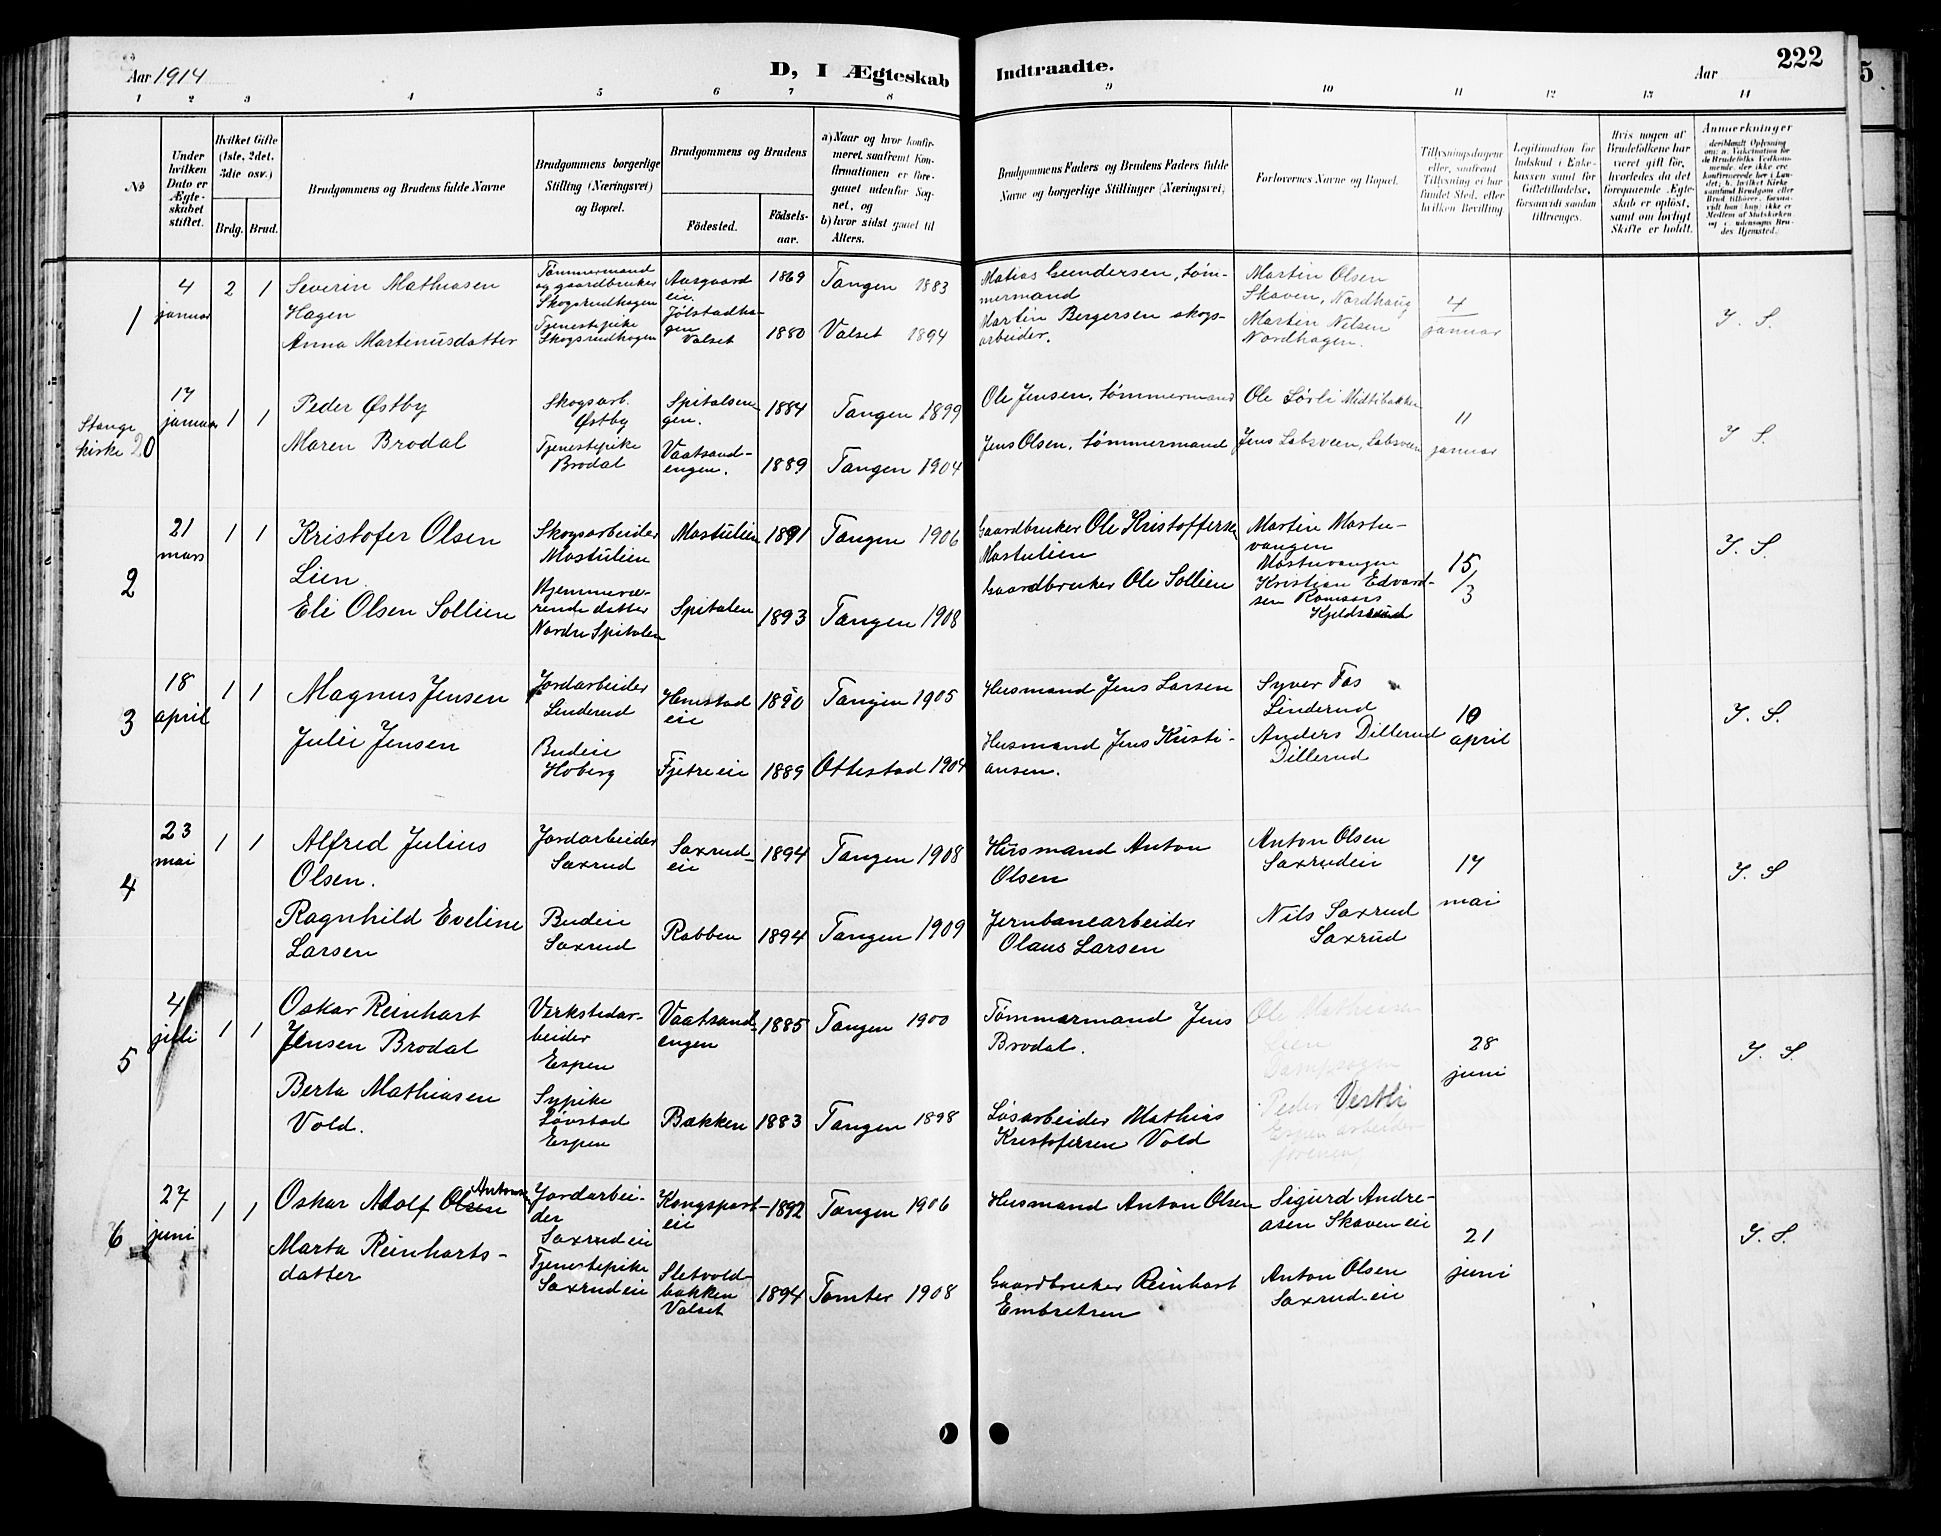 Aar 1914
D, I Ægteskab
Indtraadte.
Aar
222
5
1 2 3 4 5 6 7 8 9 10 11 12 13 14
No
Under hvilken Dato er Ægteskabet stiftet.
Hvilket Gifte (1ste, 2det, 3die osv.)
Brdg. Brud.
Brudgommens og Brudens fulde Navne
Brudgommens borgerlige Stilling (Næringsvei) og Bopæl.
Brudgommens og Brudens
Fødested.
Fødselsaar.
a) Naar og hvor konfirmeret, saafremt Konfirmationen er foregaaet udenfor Sognet, og
b) hvor sidst gaaet til Alters.
Brudgommens Faders og Brudens Faders fulde Navne og borgerlige Stillinger (Næringsvei)
Forlovernes Navne og Bopæl.
Tillysningsdagene eller, saafremt Tillysning ei har fundet Sted, efter hvilken Bevilling
Legitimation for Indskud i Enkekassen samt for Giftetilladelse, forsaavidt saadan tiltrænges.
Hvis nogen af Brudefolkene har været gift før, hvorledes da det foregaaende Ægteskab er opløst, samt om lovligt Skifte er holdt.
Anmærkninger
1
4 januar
2 1
Severin Mathiasen
Hagen
Anna Martinusdatter
Tømmermand
og gaardbruker
Skogsrudhagen
Tjenestepike
Skogsrudhagen
Aasgaard
eie.
Jølstadha-
gen
Valset
1869
1880
Tangen 1883
Valset 1894
Matias Gundersen, tøm-
mermand
Martin Bergersen skogs-
arbeider.
Martin Olsen
Skaven, Nordhaug
Martin Nilsen
Nordhagen.
4
januar
I. S.
Stange
kirke 20
17
januar
1 1
Peder Østby
Maren Brodal
Skogsarb.
Østby
Tjenestepike
Brodal
Spitalsen-
gen.
Vaatsand-
engen.
1884
1889
Tangen 1899
Tangen 1904
Ole Jensen, tømmermand
Jens Olsen, tømmermand
Ole Sørli Midtibakken
Jens Labsveen, Labsveen
11
januar
I. S.
2
21
mars
1 1
Kristofer Olsen
Lien.
Eli Olsen Sollien
Skogsarbeider
Mostulien
Hjemmevæ-
rende datter
Nordre Spitalen
Mostulien
Spitalen
1891
1893
Tangen 1906
Tangen 1908
Gaardbruker Ole Kristoffersen
Mostulien
Gaardbruker Ole Sollien
Martin Mostu-
vangen
Mostuvangen
Kristian Edvard-
sen Ramsøs
Kjeldsrud
15/3
I. S.
3
18
april
1 1
Magnus Jensen
Julie Jensen
Jordarbeider
Linderud
Budeie
Hoberg
Hemstad
eie
Fjetre eie
1890
1889
Tangen 1905
Ottestad 1904
Husmand Jens Larsen
Husmand Jens Kristi-
ansen.
Syver Fos
Linderud
Anders Dillerud
Dillerud
10
april
I. S.
4
23
mai
1 1
Alfred Julius
Olsen.
Ragnhild Eveline
Larsen
Jordarbeider
Saxrud
Budeie
Saxrud
Saxrud-
eie
Robben
1894
1894
Tangen 1908
Tangen 1909
Husmand Anton
Olsen
Jernbanearbeider
Olaus Larsen
Anton Olsen
Saxrudeie
Nils Saxrud
Saxrud
17
mai
I. S
5
4
juli
1 1
Oskar Reinhart
Jensen Brodal
Berta Mathiasen
Vold.
Verkstedar-
beider
Espen
Sypike
Løvstad
Espen
Vaatsand-
engen
Bakken
1885
1883
Tangen 1900
Tangen 1898
Tømmermand Jens
Brodal.
Løsarbeider Mathias
Kristofersen Vold
Ole Mathiasen
Lien
Dampsagen
Peder Vestli
Espen arbeider
forening
28
juni
I. S.
6
27
juni
1 1
Oskar Adolf Olsen Antonsen
Marta Reinharts-
datter
Jordarbei-
der
Saxrud eie
Tjenestepike
Saxrud eie
Kongsport-
eie
Sletvold-
bakken
Valset
1892
1894
Tangen 1906
Tomter 1908
Husmand Anton Olsen
Gaardbruker Reinhart
Embretsen
Sigurd Andre-
asen Skaven eie
Anton Olsen
Saxrud-eie
21
juni
I. S.